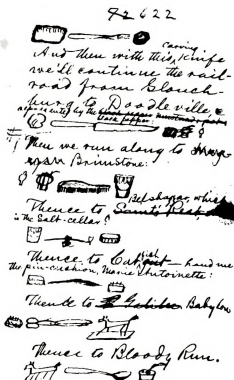 42622
carving
And then with this knife
we'll continue the rail-
road from Slouch-
burg to Doodleville
represented by the black pepper
Then we run along to
Brimstone:
Belshazzar, which
Thence to
is the Salt-cellar!
Thence to Catfish hand me
the pin-cushion, Marie Antoinette:
Thence to Babylon
Thence to Bloody Run.